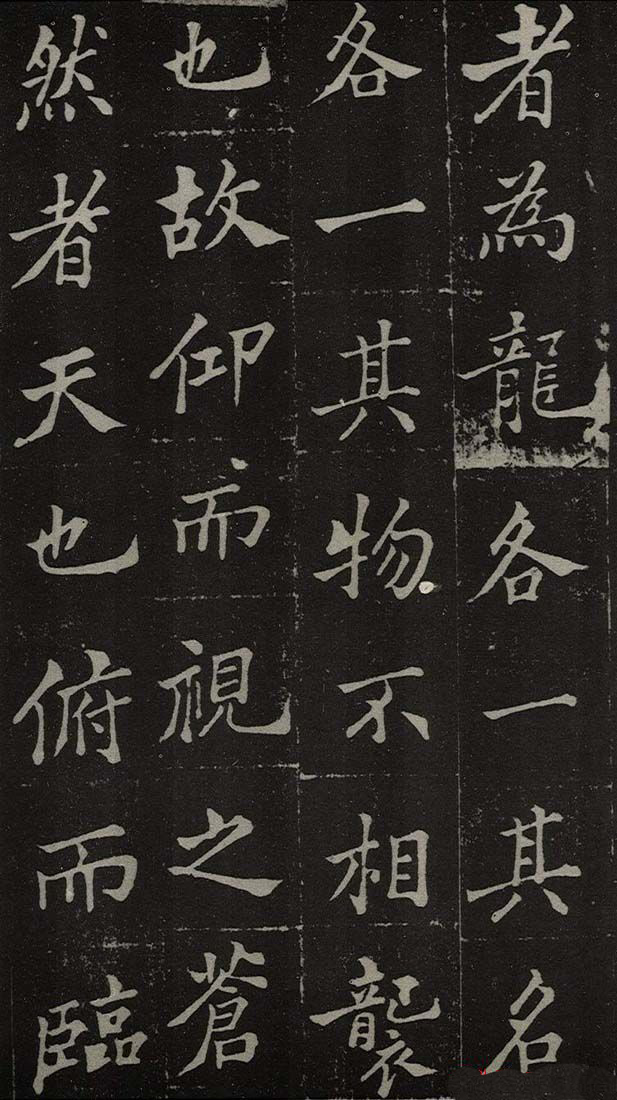 者為龍各一其名
各一其物不相襲
也故仰而視之蒼
然者天也俯而臨